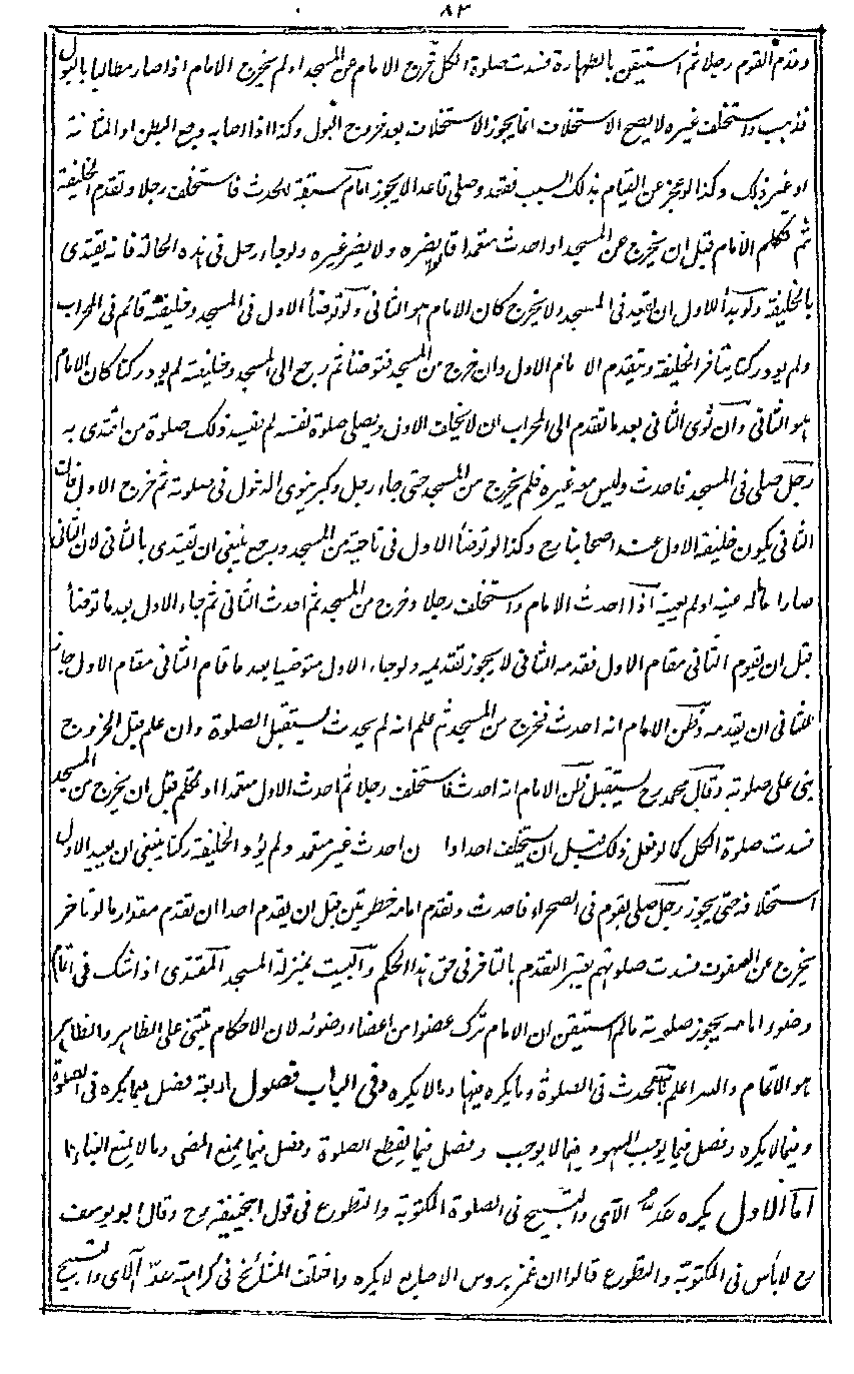 ٨٣
وقدم القوم رجلا ثم استيقن بالطهارة فسدت صلوة الكل خرج الامام عن المسجد او لم يخرج الامام اذا صار مطالبا بالبول
فذهب واستخلف غيره لا يصح الاستخلاف انما يجوز الاستخلاف بعد خروج البول وكذا اذا اصابه وجع البطن او المثانة
او غير ذلك وكذا لو عجز عن القيام بذلك السبب فقعد وصلى قاعدا لا يجوز امام سبقه الحدث فاستخلف رجلا وتقدم الخليفة
ثم تكلم الامام قبل ان يخرج عن المسجد او احدث متعمدا قالوا يضره ولا يضر غيره ولو جاء رجل فى هذه الحالة فانه يقتدى
بالخليفة ولو بدأ للاول ان يقعد فى المسجد ولا يخرج كان الامام هو الثانى ولو توضأ الاول فى المسجد وخليفته قائم فى المحراب
ولم يؤد ركنا يتأخر الخليفة ويتقدم الامام الاول وان خرج من المسجد فتوضأ ثم رجع الى المسجد وخليفته لم يؤد ركنا كان الامام
هو الثانى وان نوى الثانى بعد ما تقدم الى المحراب ان لا يخلف الاول ويصلى صلوة نفسه لم يفسد ذلك صلوة من اقتدى به
رجل صلى فى المسجد فاحدث وليس معه غيره فلم يخرج من المسجد حتى جاء رجل وكبر ينوى الدخول فى صلوته ثم خرج الاول فان
الثانى يكون خليفة الاول عند اصحابنا رح وكذا لو توضأ الاول فى ناحية من المسجد ورجع ينبغى ان يقتدى بالثانى لان الثانى
صار اماما له عينه او لم يعينه اذا احدث الامام واستخلف رجلا وخرج من المسجد ثم احدث الثانى ثم جاء الاول بعد ما توضأ
قبل ان يقوم الثانى مقام الاول فقدمه الثانى لا يجوز تقديمه ولو جاء الاول متوضيا بعد ما قام الثانى مقام الاول جاز
للثانى ان يقدمه وظن الامام انه احدث فخرج من المسجد ثم علم انه لم يحدث يستقبل الصلوة وان علم قبل الخروج
بنى على صلوته وقال محمد رح يستقبل ظن الامام انه احدث فاستخلف رجلا ثم احدث الاول متعمدا او تكلم قبل ان يخرج من المسجد
فسدت صلوة الكل كما لو فعل ذلك قبل ان يستخلف احدا وان احدث غير متعمد ولم يؤد الخليفة ركنا ينبغى ان يعيد الاول
استخلافه حتى يجوز رجل صلى بقوم فى الصحراء فاحدث وتقدم امامه خطوتين قبل ان يقدم احدا ان تقدم مقدار ما لو تأخر
يخرج عن الصفوف فسدت صلوتهم يعتبر التقدم بالتأخر فى حق هذا الحكم والبيت بمنزلة المسجد المقتدى اذا شك فى اتمام
وضوء امامه يجوز صلوته ما لم يستيقن ان الامام ترك عضوا من اعضاء وضوئه لان الاحكام تبتنى على الظاهر والظاهر
هو الاتمام والله اعلم باب الحدث فى الصلوة وما يكره فيها وما لا يكره وفى الباب فصول اربعة فصل فيما يكره فى الصلوة
وفيما لا يكره وفصل فيما يوجب السهو وفيما لا يوجب وفصل فيما يقطع الصلوة وفصل فيما يمنع المضى وما لا يمنع البناء
اما الاول يكره عد الآى والتسبيح فى الصلوة المكتوبة والتطوع فى قول ابيحنيفة رح وقال ابو يوسف
رح لا بأس فى المكتوبة والتطوع قالوا ان غمز بروس الاصابع لا يكره واختلف المشائخ فى كراهية عد الآى والتسبيح